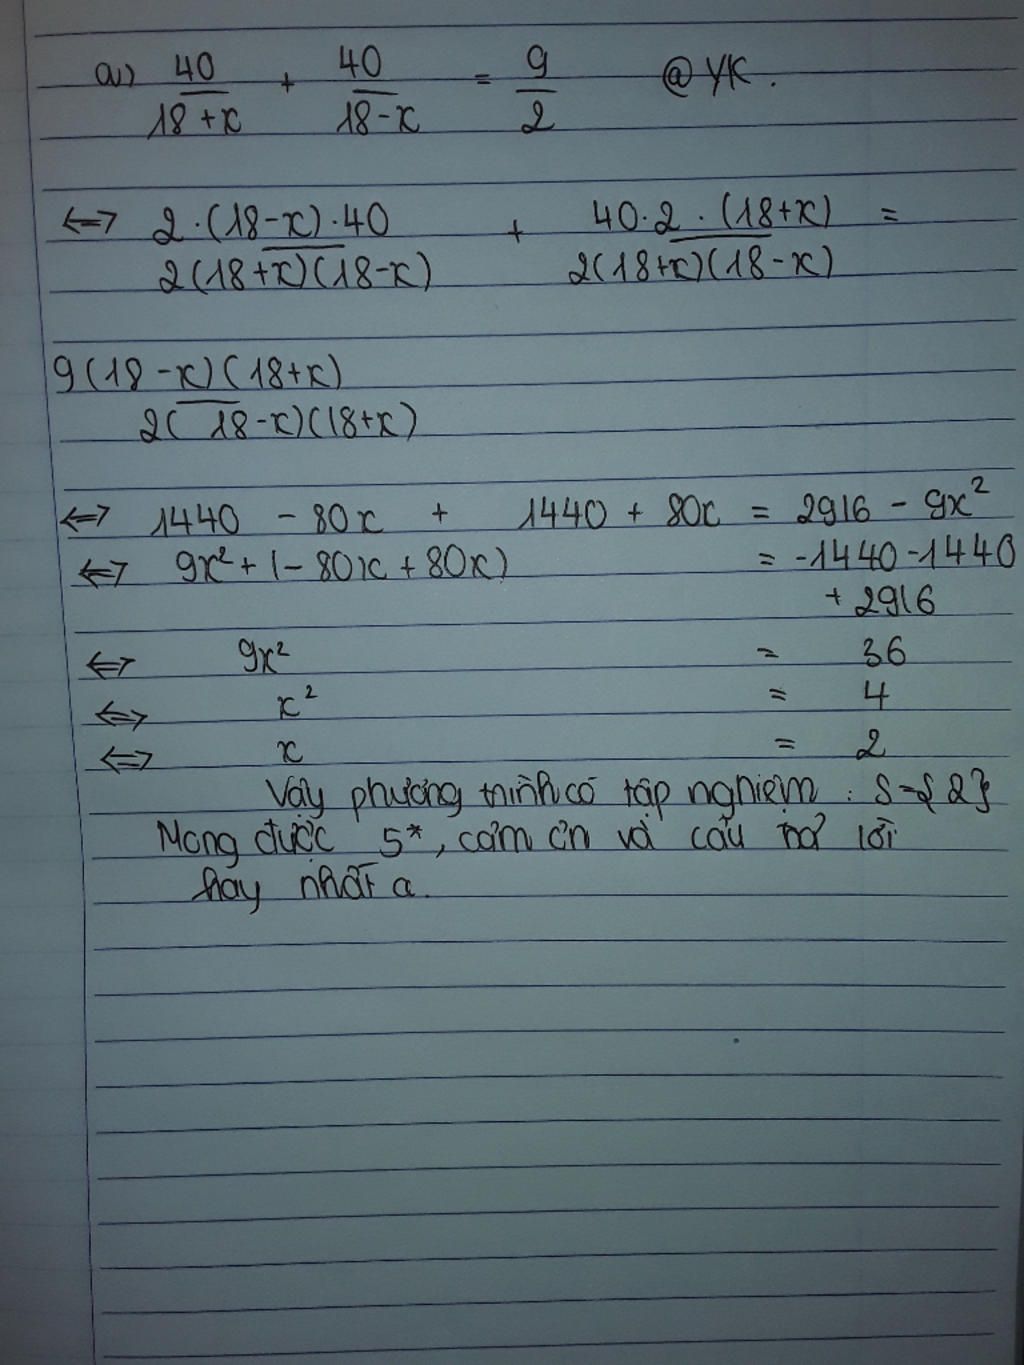 a,) 40/(18+x) + 40/(18-x) = 9/2 @YK.
<=> 2.(18-x).40/2(18+x)(18-x) + 40.2.(18+x)/2(18+x)(18-x) =
9(18-x)(18+x)/2(18-x)(18+x)
<=> 1440 - 80x + 1440 + 80x = 2916 - 9x²
<=> 9x² + (-80x + 80x) = -1440 -1440
+ 2916
<=> 9x² = 36
<=> x² = 4
<=> x = 2
Vậy phương trình có tập nghiệm : S={2}
Mong được 5*, cảm ơn và câu trả lời
hay nhất ạ.